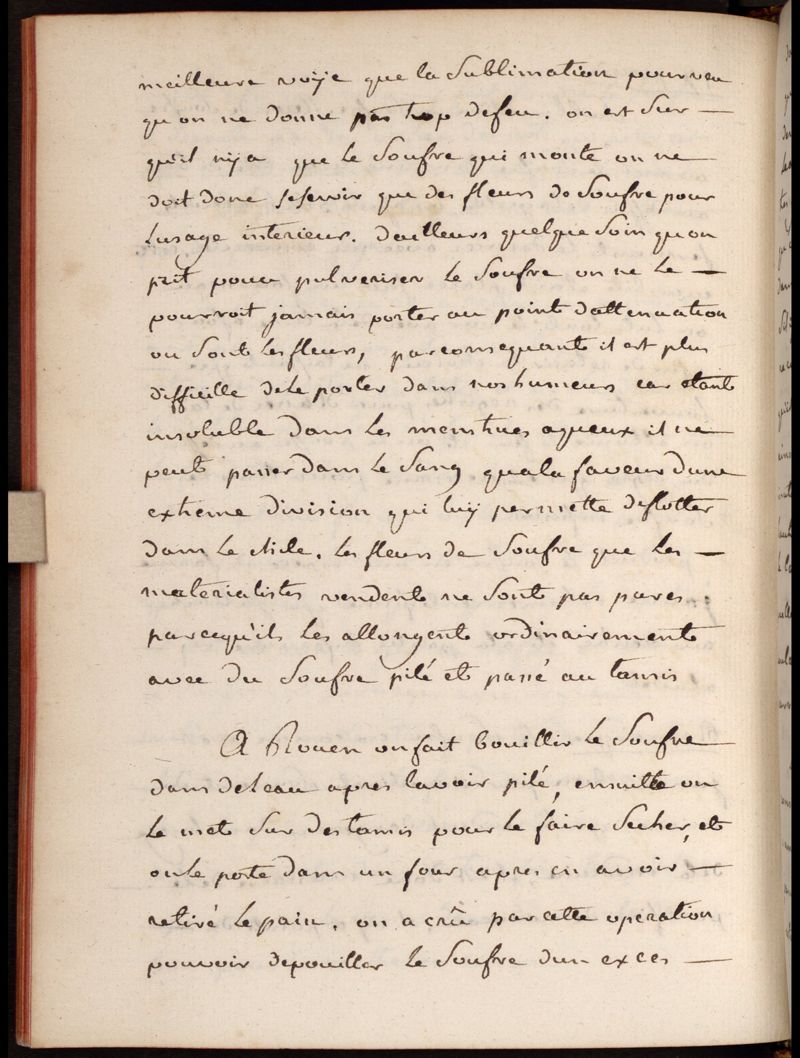 meilleure voÿe que la Sublimation pourveu
qu on ne donne pas trop defeu. on est Sur —
qu'il nÿa que le Soufre qui monte on ne
doit donc se servir que des fleurs de Soufre pour
lusage interieur. dailleurs quelque Soin qu on
prit pour pulveriser le Soufre on ne le —
pourroit jamais porter au point dattenuation
ou Sont les fleurs, parconsequante il est plus
difficille dele porter dans nos humeurs car etant
insoluble dans les menstrues aqueux il ne
peut passer dans le Sang quala faveur dune
extreme division qui luÿ permette deflotter
dans le chile. les fleurs de Soufre que les —
materialistes vendent ne Sont pas pures.
parcequ'ils les allongent ordinairement
avec du Soufre pilé et passé au tamis.
A Rouen on fait bouillir le Soufre
dans deleau apres lavoir pilé, ensuitte on
le met Sur des tamis pour le faire Secher, et
on le porte dans un four apres en avoir —
retiré le pain. on a crû par cette operation
pouvoir depouiller le Soufre dun exces —